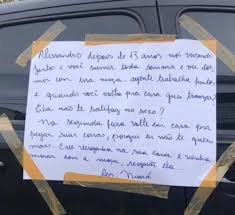 Alessandro depois de 13 anos nós vivendo
juntos e você sumir toda semana e ir dor
mir com essa moça. agente trabalha juntos
e quando você volta pra casa quer transar?
Ela não te satisfaz no sexo?
Na segunda feira volte em casa pra
pegar suas coisas, porque eu não te quero
mais. Crie vergonha na sua cara e
morar com a moça, respeite ela